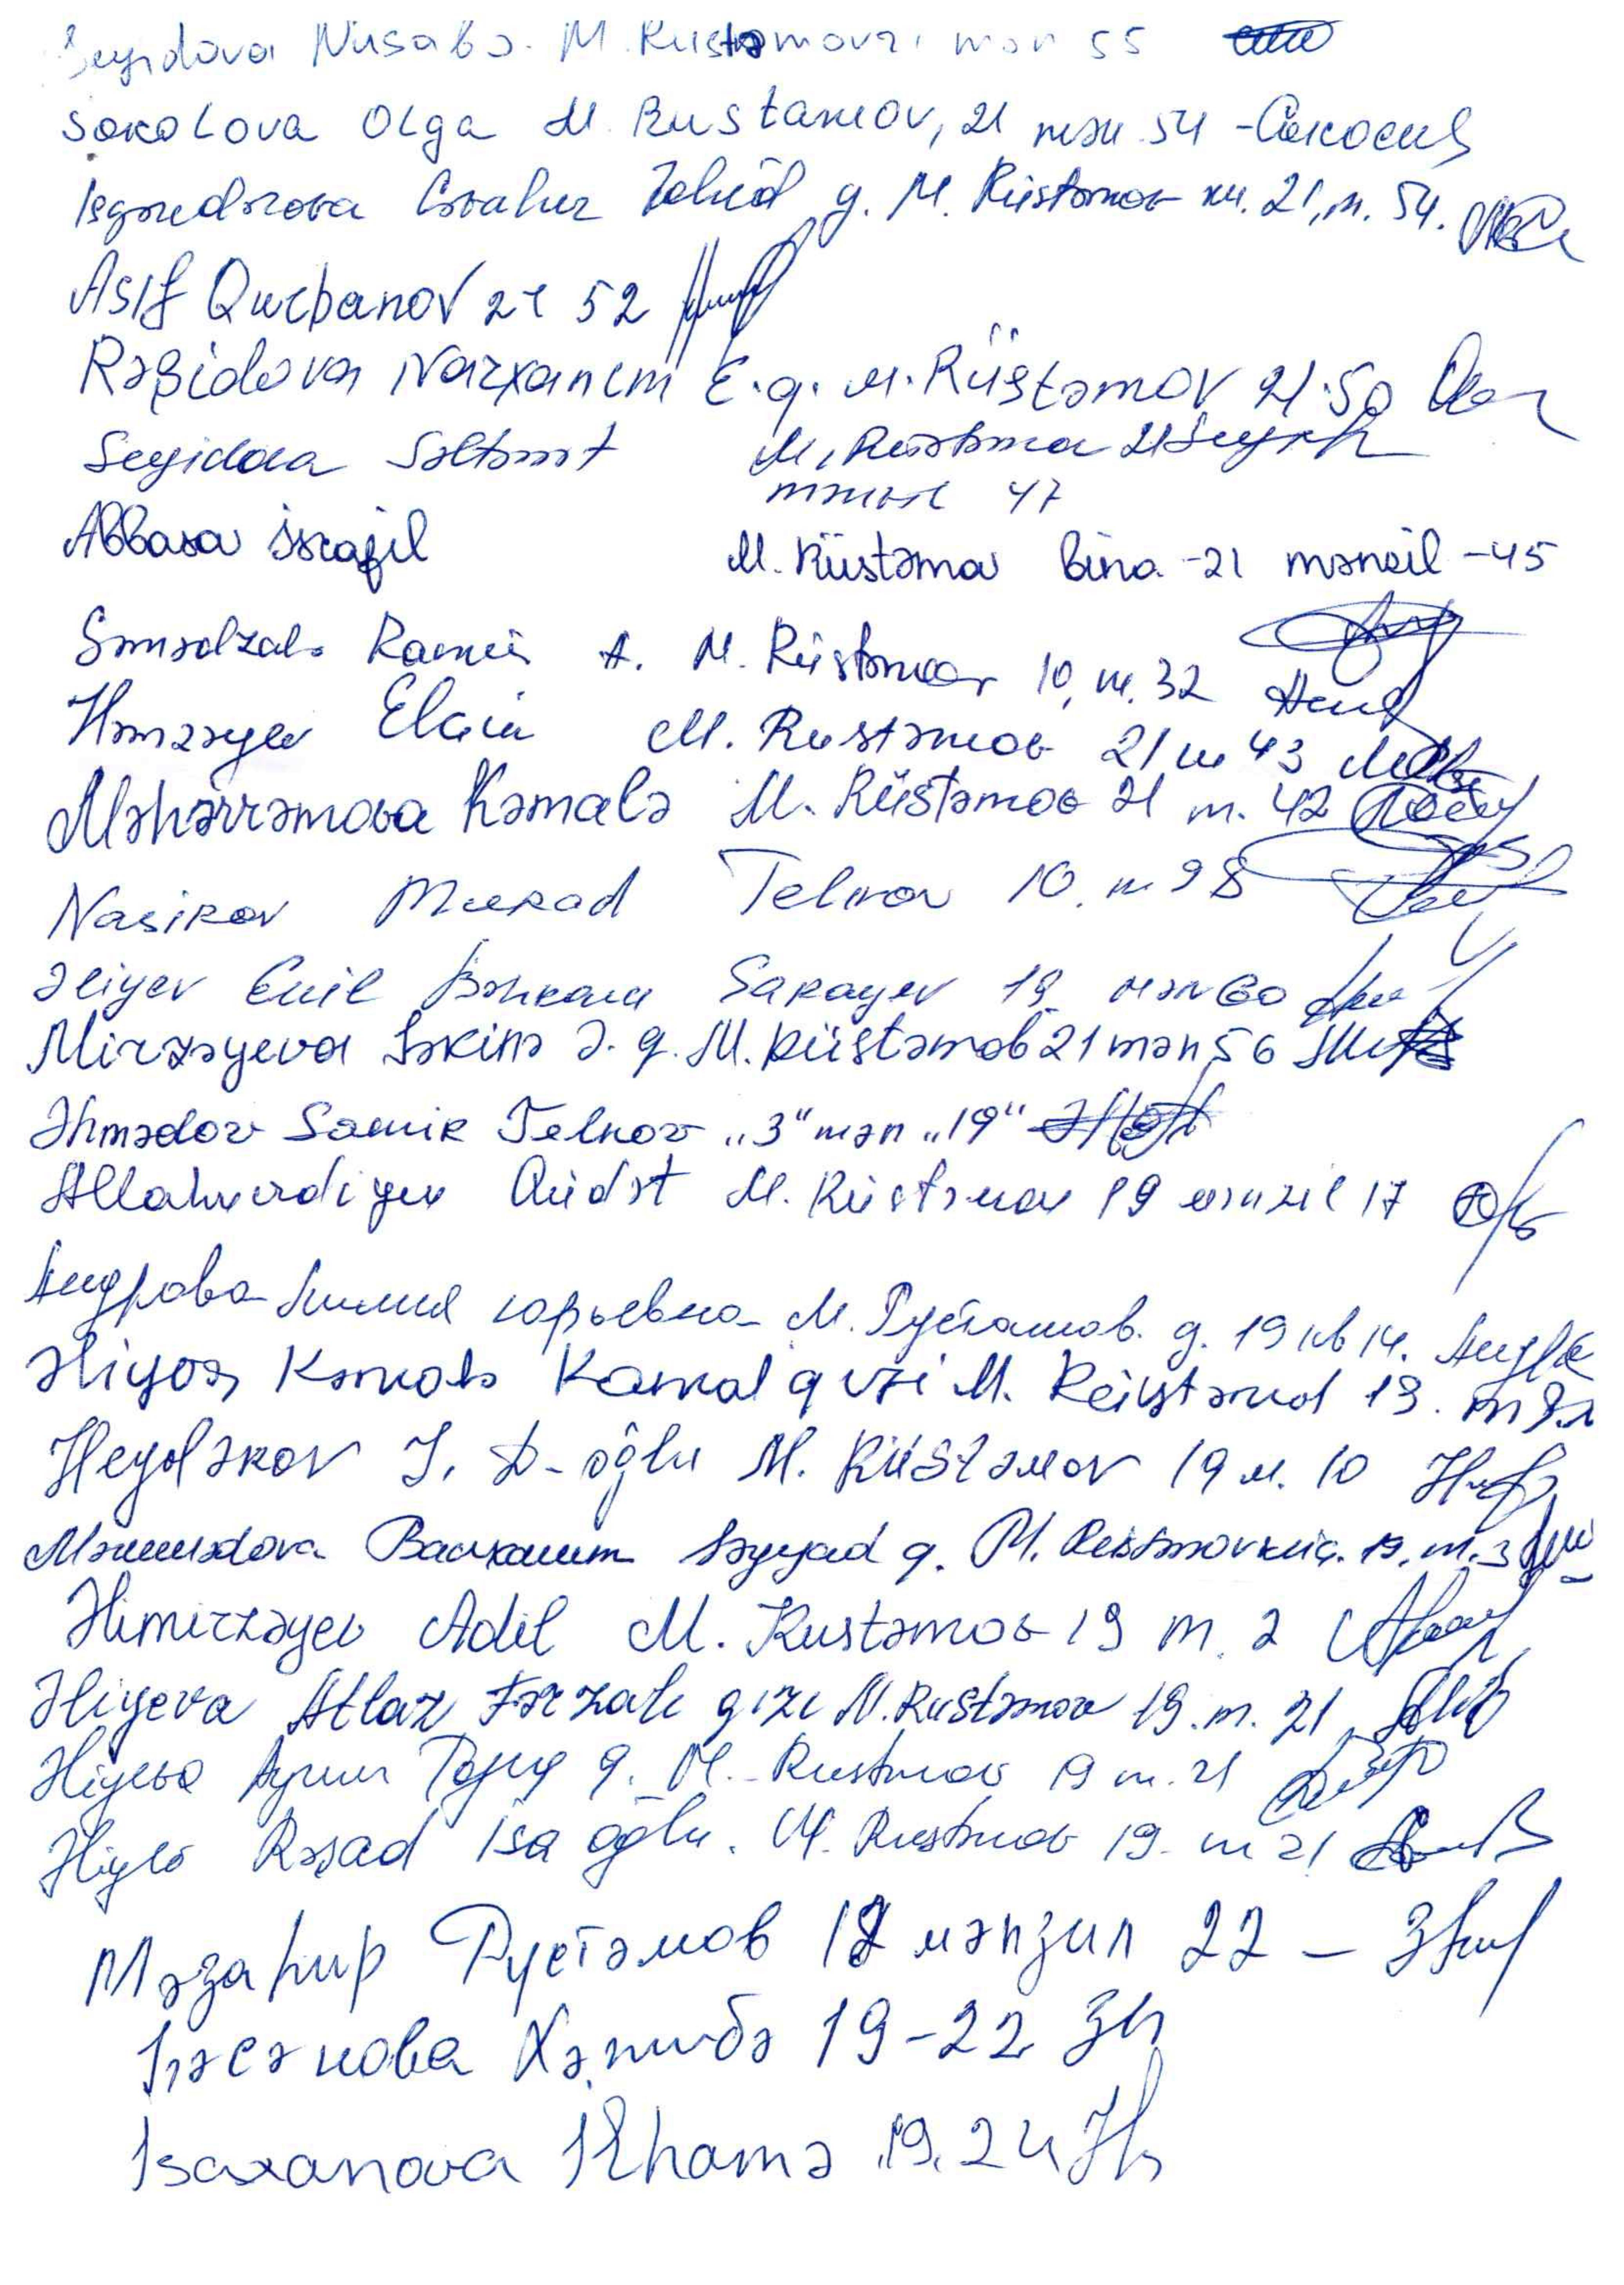 Seyidova Nisabə. M. Rüstəmov 21 mən 55
Sokolova Olga M. Rustamov, 21 mən 54 - Соколов
Isgəndərova Cəvahir Zahid q. M. Rüstəmov küç. 21, m. 54.
Asif Qurbanov 21 52
Rəşidova Narxanım E.q. M. Rüstəmov 21.50
Seyidova Səltənət M. Rüstəmov 21
mənzil 47
Abbasov İsrafil M. Rüstəmov bina - 21 mənzil - 45
Səmədzadə Ramin A. M. Rüstəmov 10, m. 32
Həmzəyev Elçin M. Rustəmov 21 m 43
Məhərrəmova Kəmalə M. Rüstəmov 21 m. 42
Nasirov Murad Telnov 10. m 98
Əliyev Emil Sarayev 19 mən 60
Mirzəyeva Səkinə Ə. q. M. Rüstəmov 21 mən 56
Əhmədov Samir Telnov „3" mən „19"
Allahverdiyev Qüdrət M. Rüstəmov 19 mənzil 17
Андрова Юрьевна М. Рустамов. д. 19 кв 14.
Əliyeva Kəmalə Kamal qızı M. Rüstəmov 19. m
Heydərov İ. D- oğlu M. Rüstəmov 19 m. 10
Məmmədova Bacıxanım Səyyad q. M. Rüstəmov küç. 19. m. 3
Əlimirzəyev Adil M. Rustəmov 19 m. 2
Əliyeva Atlaz Fərzalı qızı M. Rustəmov 19. m. 21
Əliyeva q. M. Rustəmov 19 m. 21
Əliyev Rəşad İsa oğlu. M. Rustəmov 19. m 21
Мəзаһир Рустəмов мəнзил 22 -
Һəсəнова Хəбибə 19-22
Isaxanova İlhamə 19. 24